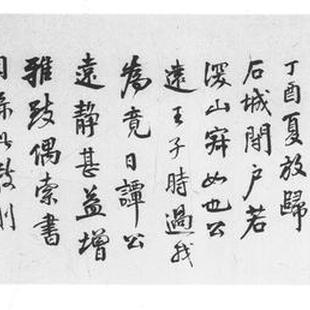 丁酉夏放歸
石城閉户若
深山寂如也公
遠王子時過我
為竟日譚公
遠静甚益增
雅致偶索書